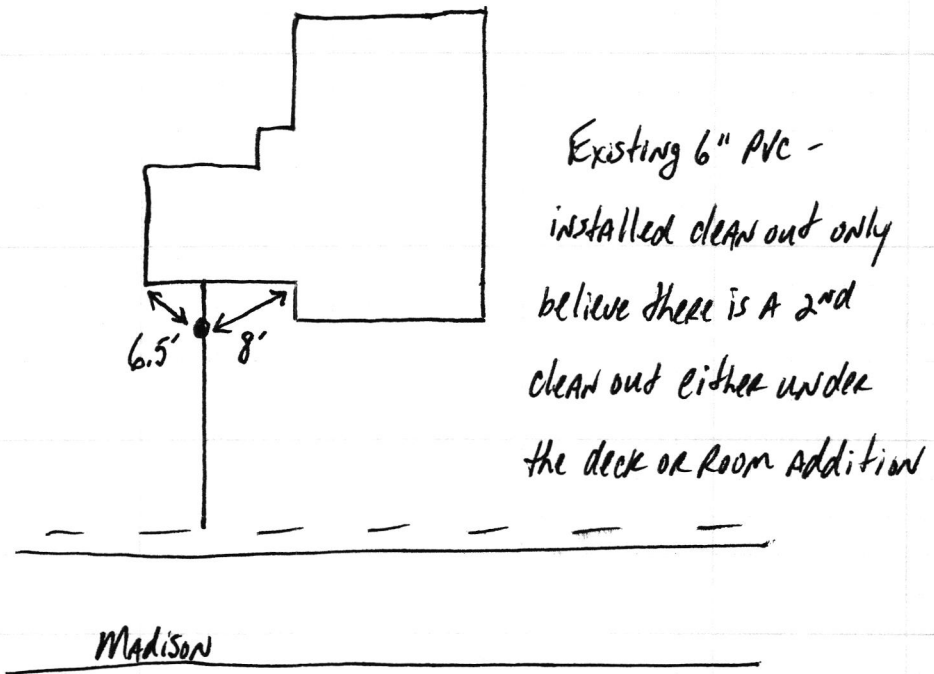 Existing 6" PVC -
installed clean out only
believe there is A 2nd
clean out either under
the deck or Room Addition
6.5' 8'
Madison